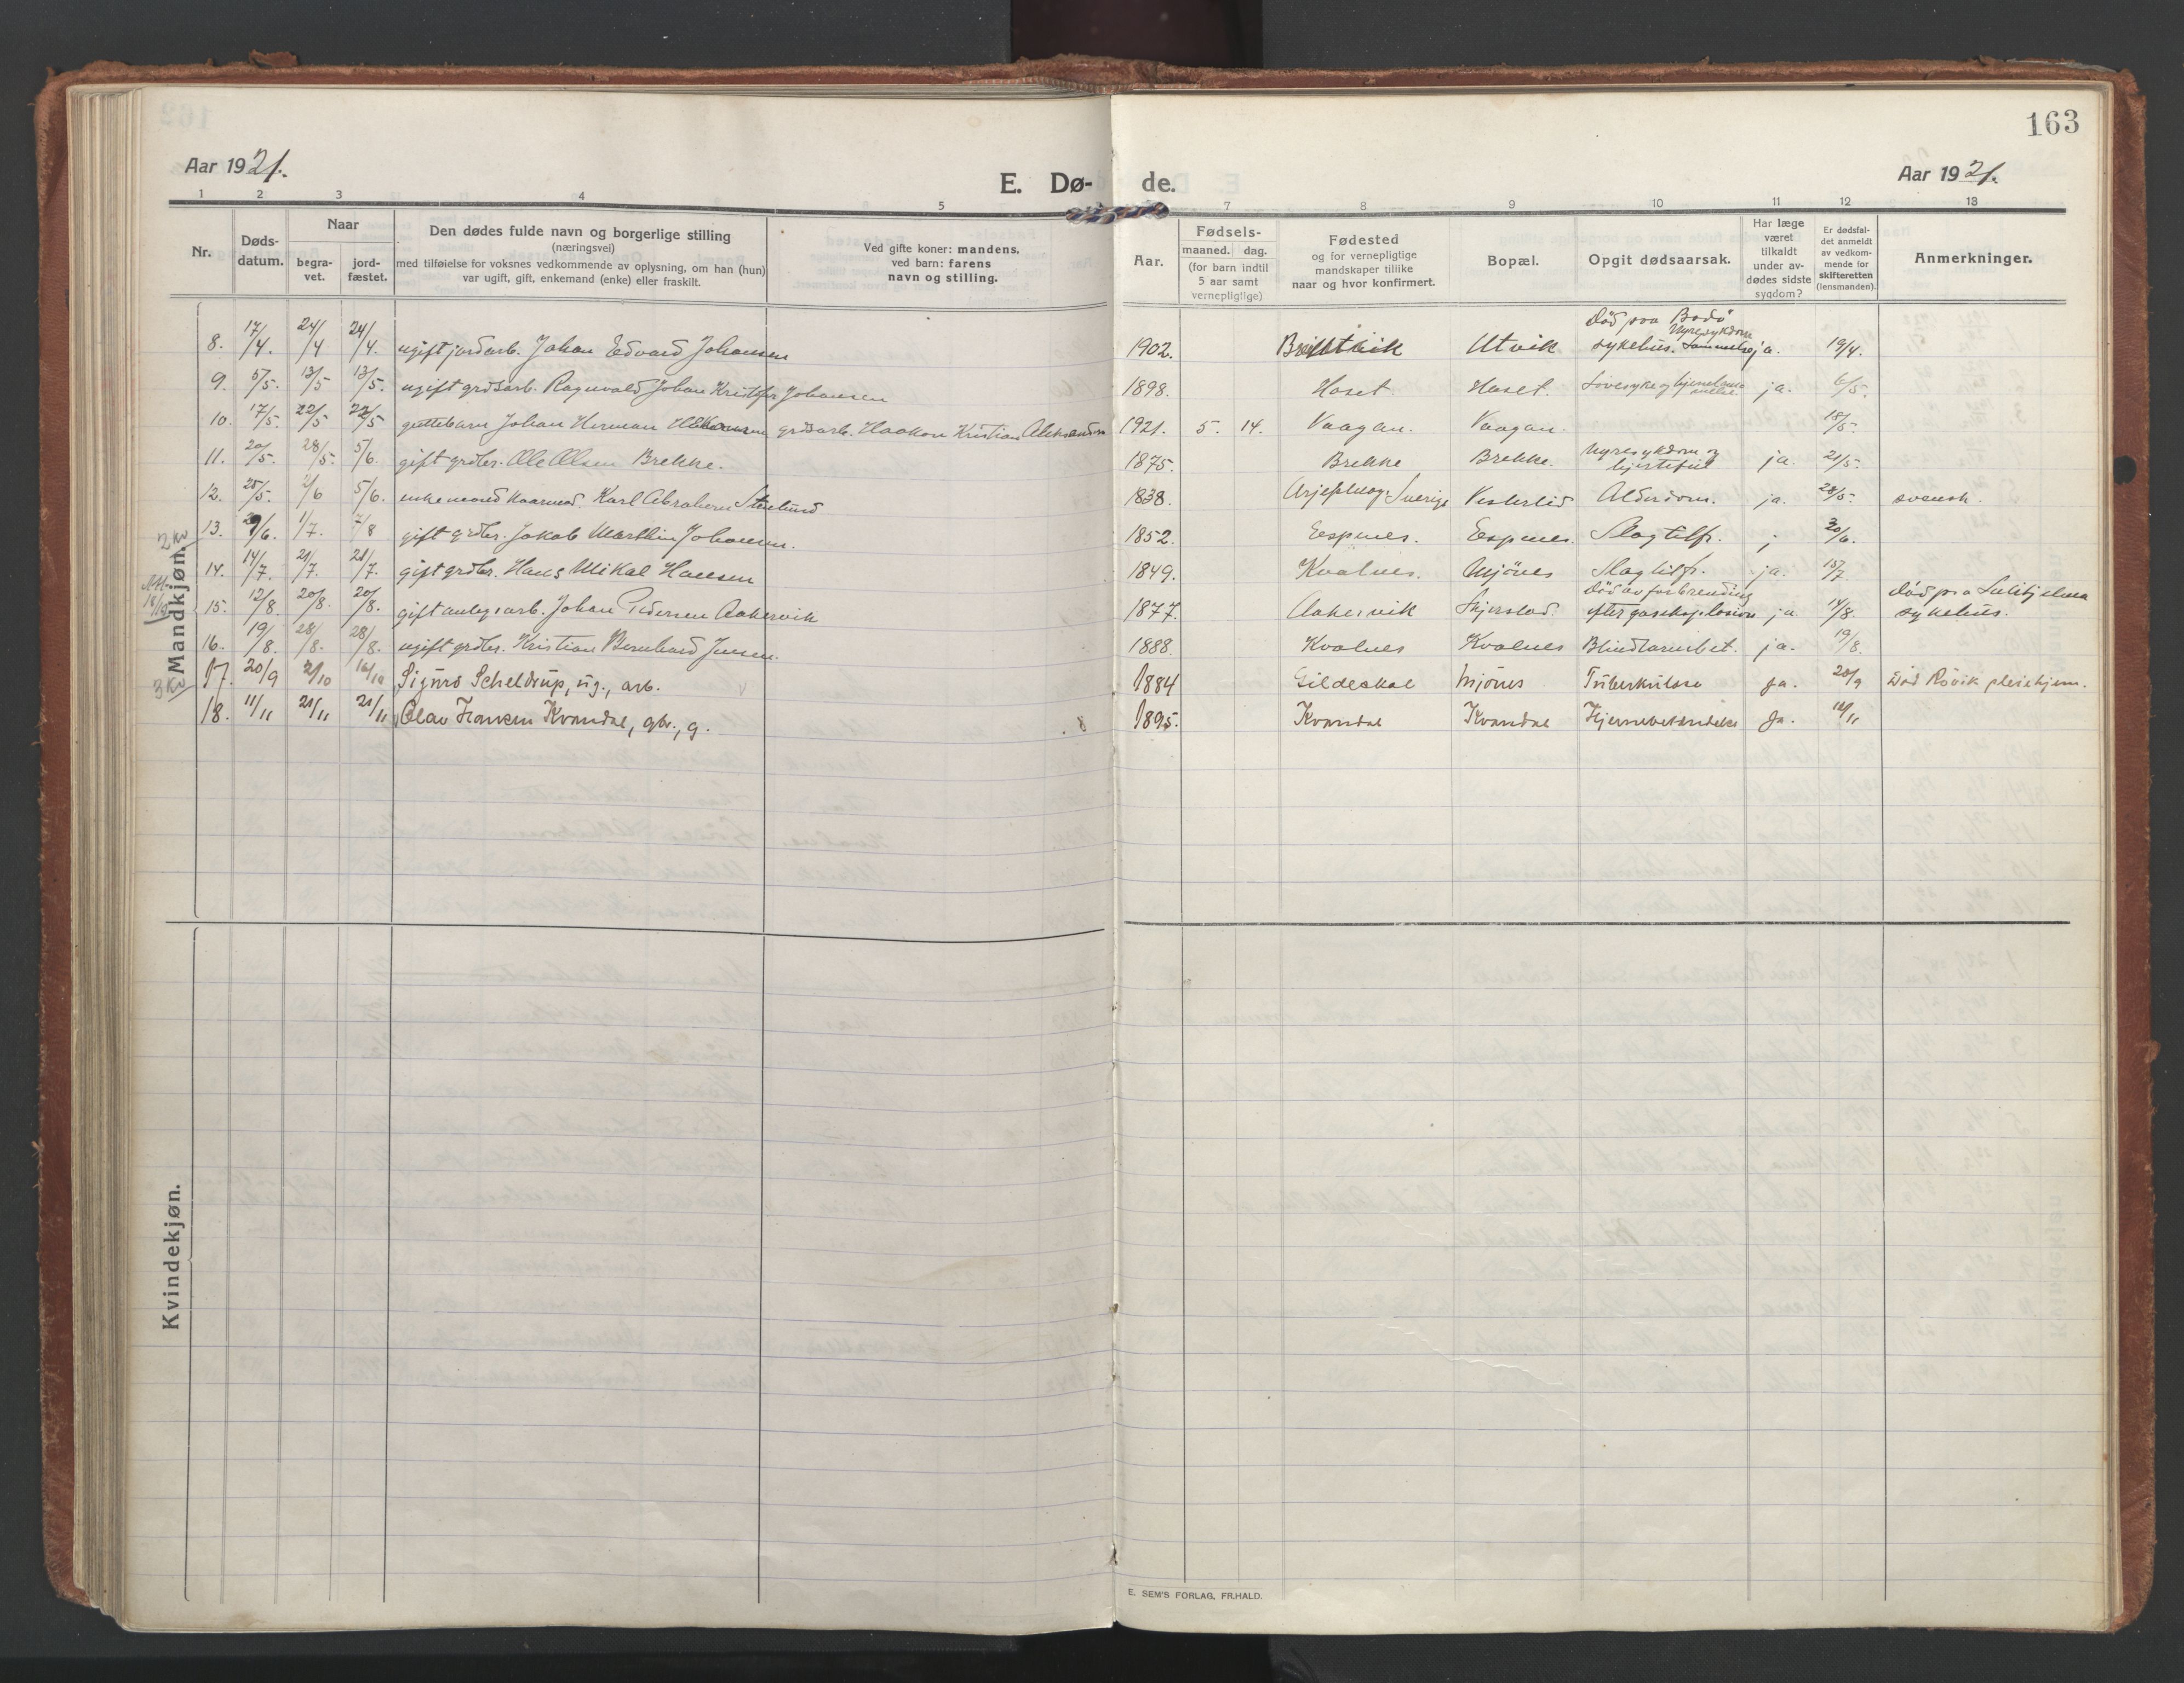 163
Aar 1921.
E. Dø- de.
Aar 1921.
1 2 3 4 5 7 8 9 10 11 12 13
Nr. Døds-datum. Naar begra-vet. jord-fæstet. Den dødes fulde navn og borgerlige stilling (næringsvei) med tilføielse for voksnes vedkommende av oplysning, om han (hun) var ugift, gift, enkemand (enke) eller fraskilt. Ved gifte koner: mandens, ved barn: farens navn og stilling. Aar. Fødsels- maaned. dag. (for barn indtil 5 aar samt vernepligtige) Fødested og for vernepligtige mandskaper tillike naar og hvor konfirmert. Bopæl. Opgit dødsaarsak. Har læge været tilkaldt under av-dødes sidste sygdom? Er dødsfal-det anmeldt av vedkom-mende for skifteretten (lensmanden). Anmerkninger.
Mandkjøn.
8. 17/4. 24/4 24/4. ugift jordarb. Johan Edvard Johansen 1902. Utvik Død paa Bodø sykehus. Nyresykdom ja. 19/4.
9. 5/5. 13/5 13/5. ugift grdsarb. Ragnvald Johan Kristofer Johansen 1898. Haset. Haset. ja. 6/5.
10. 17/5. 22/5 22/5 guttebarn Johan Herman grdsarb. Haakon Kristian Aleksandersen 1921. 5. 14. Vaagan. Vaagan. 18/5.
11. 20/5. 28/5. 5/6. gift grdbr. Ole Olsen Brekke. 1875. Brekke Brekke. Nyresykdom og hjertefeil ja. 21/5.
12. 25/5. 5/6. enkemand Karl Abraham Stenlund 1838. Arjepluog. Sverige Vesterlid Alderdom. ja. 28/5. svensk.
13. 1/7. 7/8 gift grdbr. Jakob Marthin Johansen. 1852. Eespnes. Eespnes. Slagtilf. j 30/6.
14. 14/7. 21/7. 21/7. gift grdbr. Hans Mikal Hansen 1849. Kvalnes. Mjönes Slagtilf. ja. 15/7
15. 12/8. 20/8. 20/8. gift anlegsarb. Johan Pedersen Aakervik 1877. Aakervik Skjerstad. Död av forbrending efter gaseksplosion ja 14/8. död paa Sulitjelma sykehus.
16. 19/8. 28/8. 28/8. ugift grdbr. Kristian Bernhard Jensen. 1888. Kvalnes Kvalnes Blindtarmbet. ja. 19/8.
17. 20/9 2/10 16/10 Sigurd Scheldrup, ug., arb. 1884 Gildeskal Mjönes Tuberkulose ja. 20/9 Död Røvik pleiehjem.
18. 11/11 21/11 21/11 Olav Hansen Kvandal, gbr., g. 1895. Kvandal Kvandal Hjernebetændelse ja. 12/11
Kvindekjøn.
E. SEM'S FORLAG, FR.HALD.